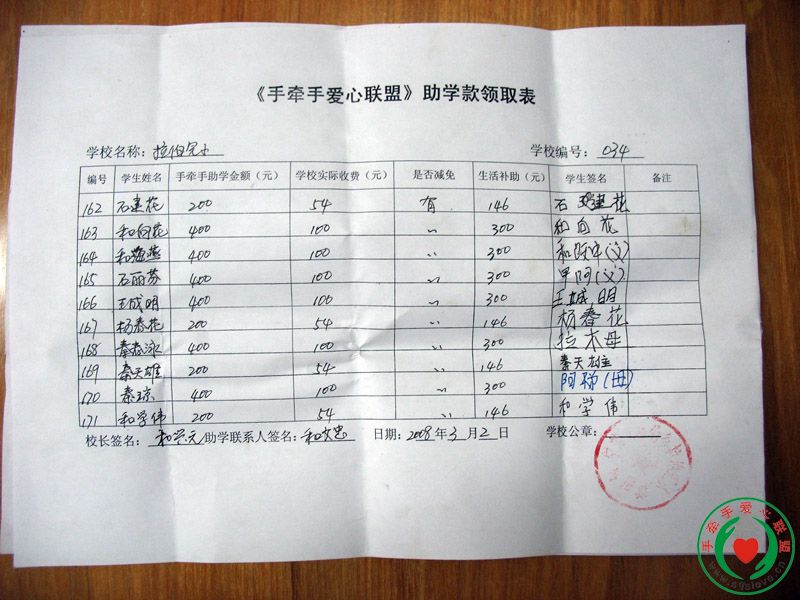 《手牵手爱心联盟》助学款领取表
学校名称：拉伯完小 学校编号：034
编号 学生姓名 手牵手助学金额（元） 学校实际收费（元） 是否减免 生活补助（元） 学生签名 备注
162 石建花 200 54 有 146 石建花
163 和向花 400 100 〃 300 和向花
164 和 燕 400 100 〃 300 和 （父）
165 石丽芬 400 100 〃 300 甲阿（父）
166 王成明 400 100 〃 300 王城明
167 杨春花 200 54 〃 146 杨春花
168 秦春泳 400 100 〃 300 拉木母
169 秦天雄 200 54 〃 146 秦天雄
170 秦琼 400 100 〃 300 阿 （母）
171 和学伟 200 54 〃 146 和学伟
校长签名： 助学联系人签名：和文忠 日期：2008年3月2日 学校公章：
手牵手爱心联盟
www.sqslove.cn